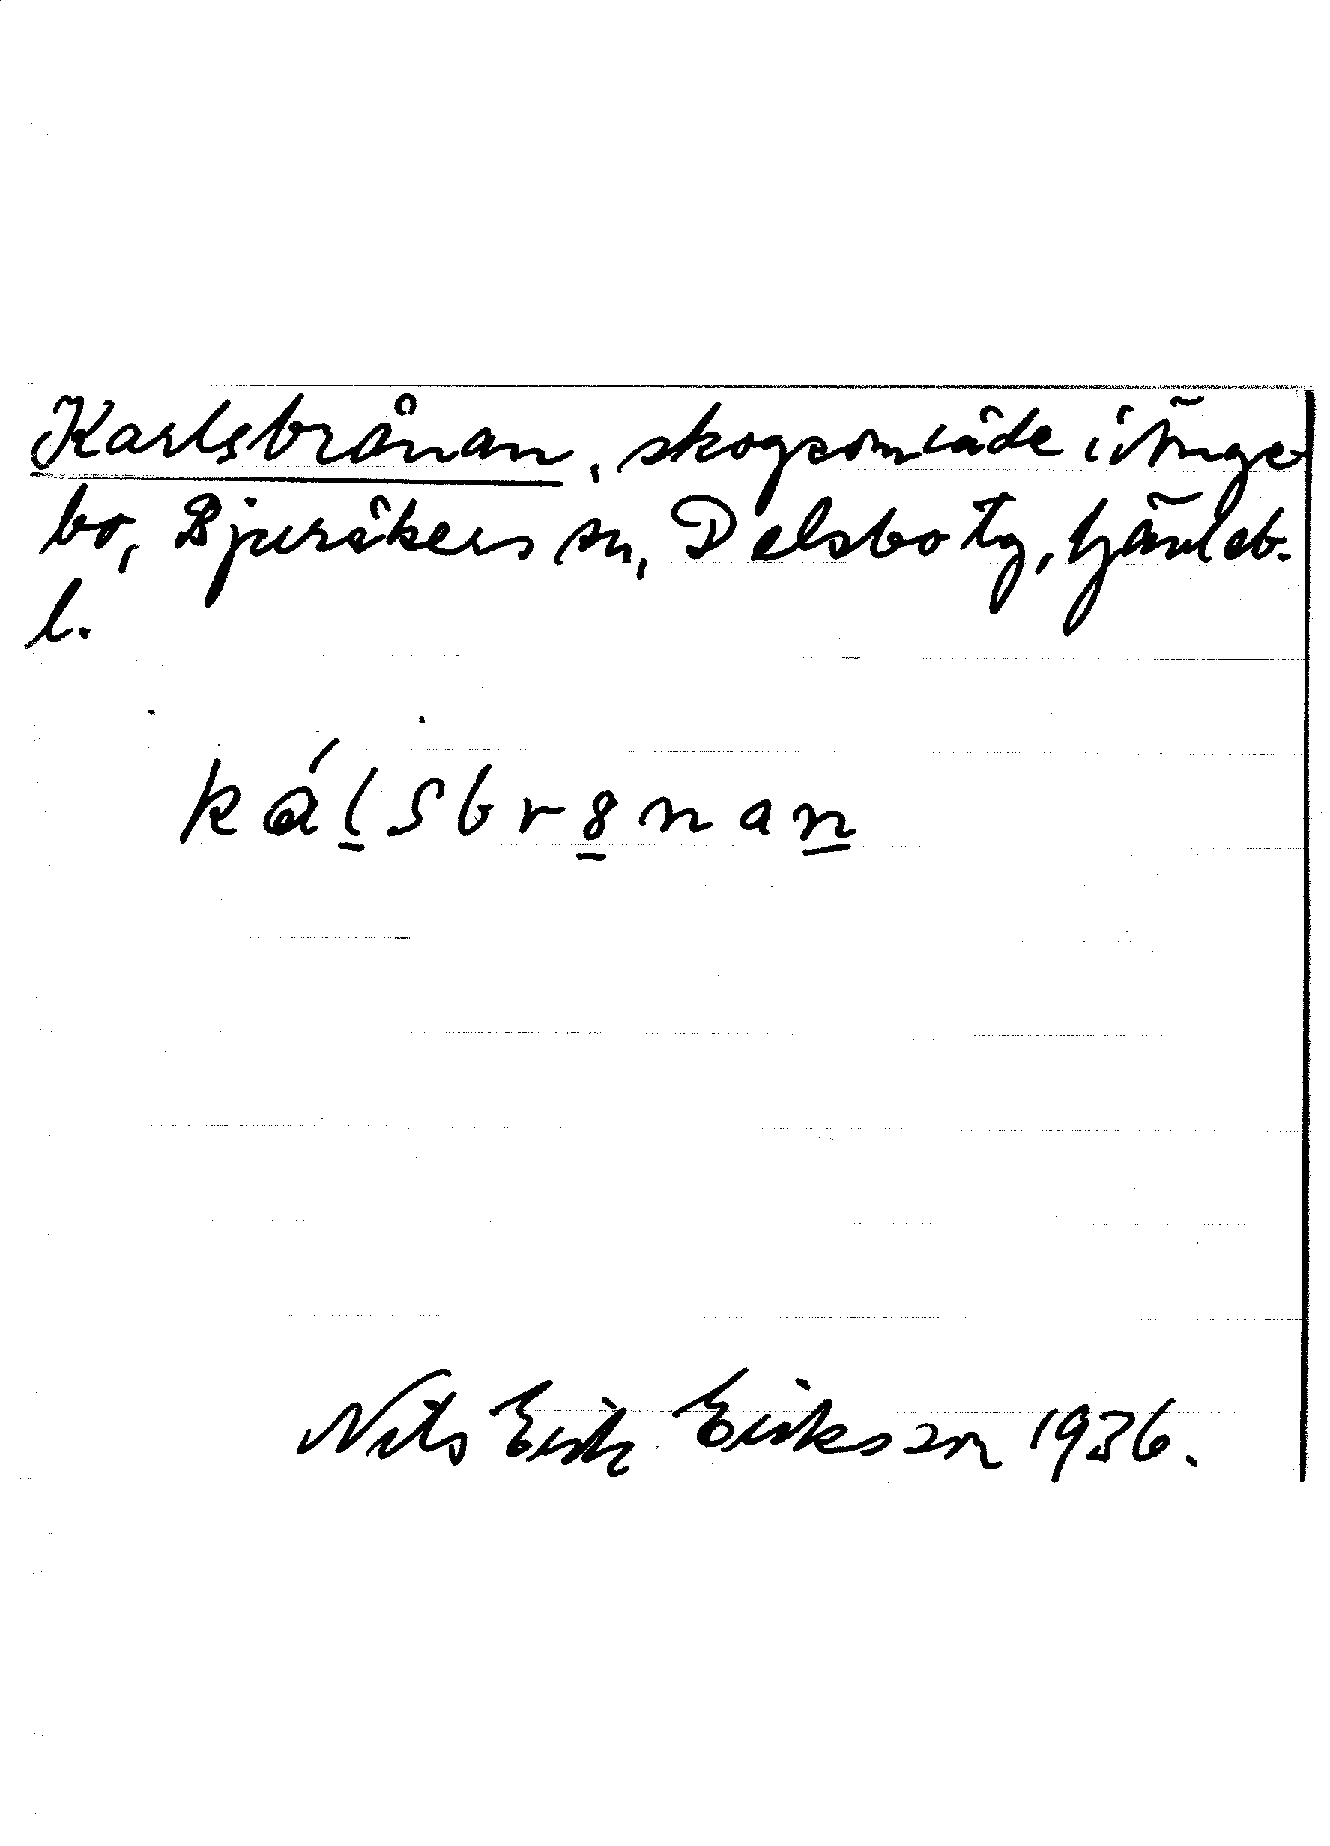 Karlsbrånan, skogsområde i Änge-
bo, Bjuråkers sn, Delsbo tg, Gävleb.
l.
kálsbr8nan
Nils Erik Eriksson 1936.